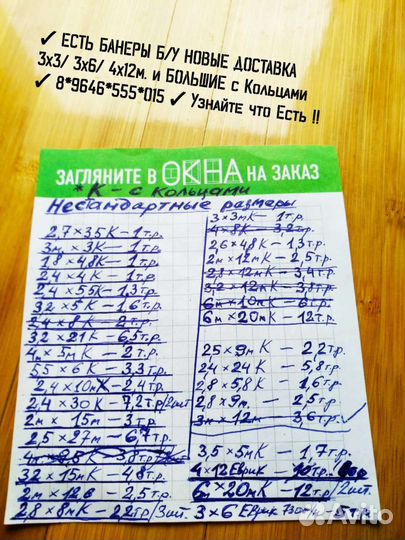 ✓ ЕСТЬ БАНЕРЫ Б/У НОВЫЕ ДОСТАВКА
3х3/ 3х6/ 4х12м. и БОЛЬШИЕ с Кольцами
✓ 8*9646*555*015 ✓ Узнайте что Есть !!
ЗАГЛЯНИТЕ В ОКНА НА ЗАКАЗ
*К – с кольцами
Нестандартные размеры
2,7×3,5К – 1т.р.
3м×3К – 1т.р.
1,8×4,8К – 1т.р.
2,4×4К – 1т.р.
2,4×5,5К – 1,3т.р.
3,2×5К – 1,6т.р.
2,4×8К – 2т.р.
3,2×21К – 6,5т.р.
4м×5мК – 2т.р.
5,5×6К – 3,3т.р.
2,4×10мК – 2,4т.р.
2,4×30К – 7,2т.р/2шт
2м×15м – 3т.р.
2,5×27м – 6,7т.р.
3,2×15мК – 4,8т.р.
2м×12,6 – 2,5т.р.
2,8×8мК – 2,2т.р/3шт.
3×3мК – 1т.р.
4×8К – 3,2т.р.
2,6×4,8К – 1,3т.р.
2м×12мК – 2,5т.р.
2,8×12мК – 3,4т.р.
3,2×12мК – 3,8т.р.
6м×10мК – 6т.р.
6м×20мК – 12т.р.
2,5×9мК – 2,2т.р.
24×24К – 5,8т.р.
2,8×5,8К – 1,6т.р.
2,8×9м. – 2,5т.р.
3м×12м – 3,6т.р.
3,5×5мК – 1,7т.р.
4×12Еврик – 10т.р.
6м×20мК – 12т.р/2шт.
3×6Еврик
Avito